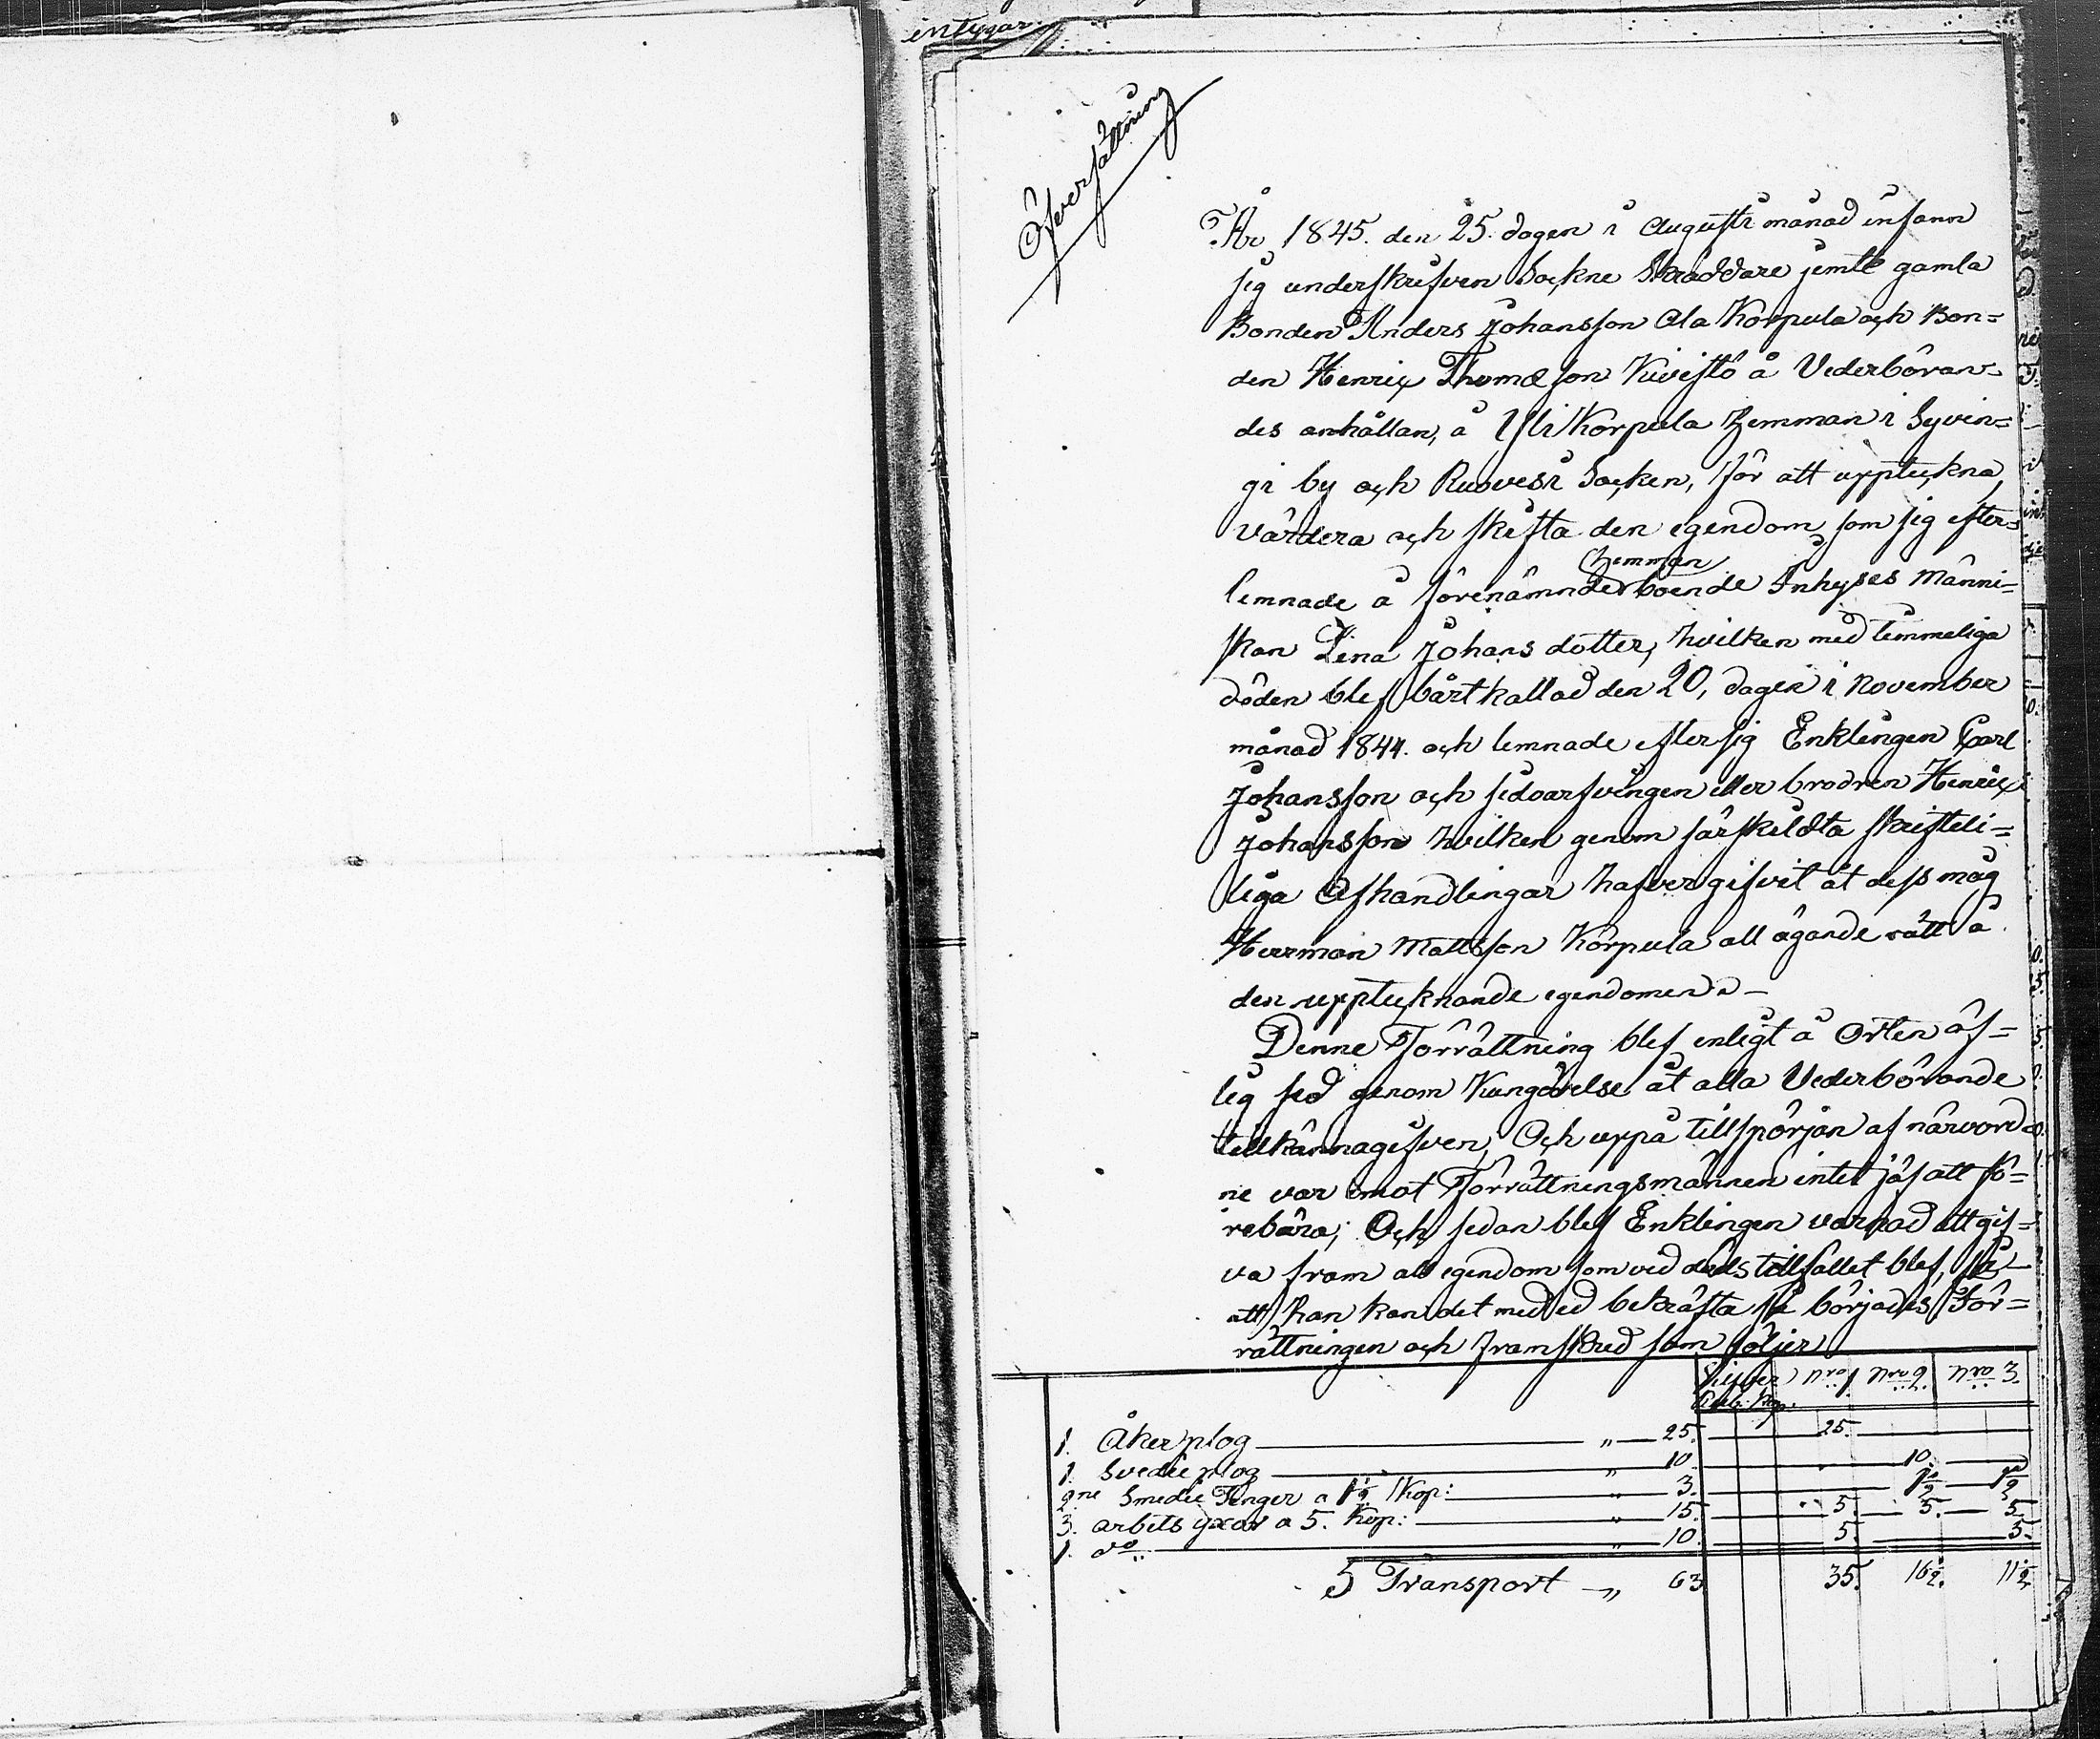 intygar.
Öfversättning
År 1845. den 25. dagen i Augusti månad infann
sig underskrifven Sockne Skraddare jemte gamla
Bonden Anders Johansson Ala Korpula och Bon=
den Henric Thomæson Kivistö å Vederböran=
des anhållan, å Yli Korpula hemman i Syvin=
gi by och Ruovesi Socken, för att uppteckna,
värdera och skifta den egendom som sig efter=
hemman
lemnade å förenämnde boende Inhyses Männi=
skan Lina Johans dotter, hvilken med timmeliga
döden blef bårtkallad den 20, dagen i November
månad 1844. och lemnade efter sig Enklingen Carl
Johansson och sidoarfvingen eller brodren Henric
Johansson hvilken genom särskildta skrifteli=
liga Afhandlingar hafver gifvit åt dess måg
Herrman Mattsson Korpula all ägande rätt å
den upptecknande egendomen.—
Denne Förrättning blef enligt å Orten äf=
lig sed genom Kungörelse åt alla Vederbörande
tillkännagifven, Och uppå tillspörjan af närvorda=
ne var emot Förrättningsmännen intet jäf att fö=
rebära; Och sedan blef Enklingen varnad att gif=
va fram all egendom som vid döds tillfället blef, så
att han kan det med ed bekräfta så börjades För=
rättningen och framskred som följer
Silfver Rub. Kop. Nro 1. Nro 2. Nro 3.
1. Åker plog — " — 25. 25.
1. Svedie plog — " 10. 10.
2ne Smedie Tenger a 1½ Kop: — " 3. 1½ 1½
3. arbets yxor a 5. Kop: — " 15. 5. 5. 5.
1. do — " 10. 5. 5.
S Transport — " 63 35. 16½. 11½.